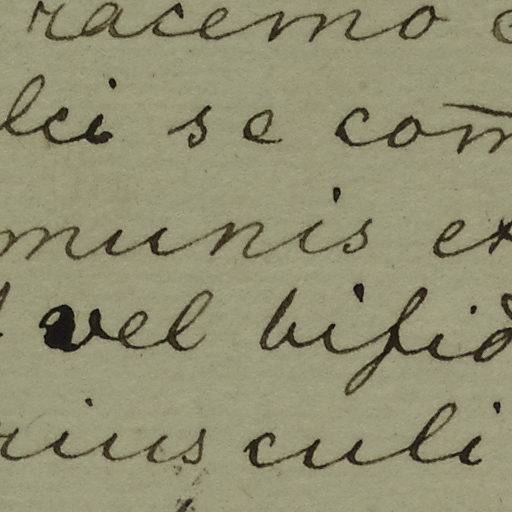 racemo
lci se com̄
munis ex
vel bifid
rius culi